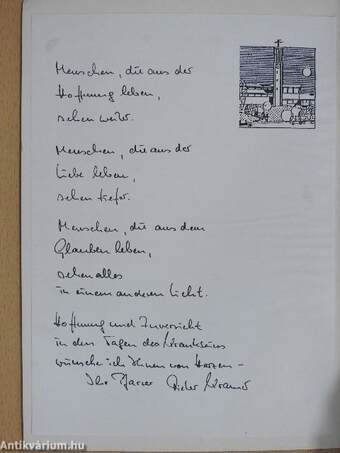 Menschen, die aus der
Hoffnung leben,
sehen weiter.
Menschen, die aus der
Liebe leben,
sehen tiefer.
Menschen, die aus dem
Glauben leben,
sehen alles
in einem anderen Licht.
Hoffnung und Zuversicht
in den Tagen des Krankseins
wünsche ich Ihnen von Herzen –
Ihr Pfarrer Dieter
Antikvárium.hu